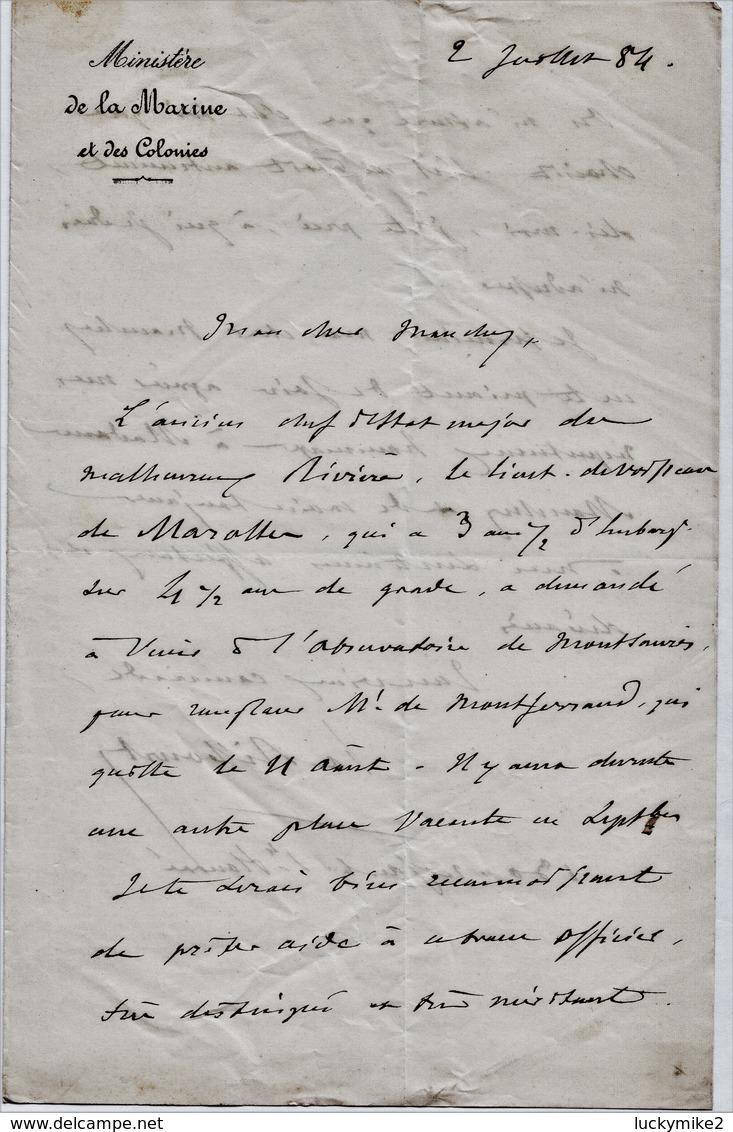 Ministère
de la Marine
et des Colonies
2 Juillet 84.
Mon cher Mouchez,
L'ancien chef d'Etat major du
malheureux Rivière, le lieut. de vaisseau
de Marolles, qui a 3 ans ½ d'embarqt
sur 4 ½ ans de grade, a demandé
à venir à l'observatoire de Montsouris,
pour remplacer Mr. de Montferrand, qui
quitte le 11 août - Il y aura de suite
une autre place vacante en Septbre
Je te serais bien reconnaissant
de prêter aide à ce brave officier,
très distingué et très méritant.
luckymike2